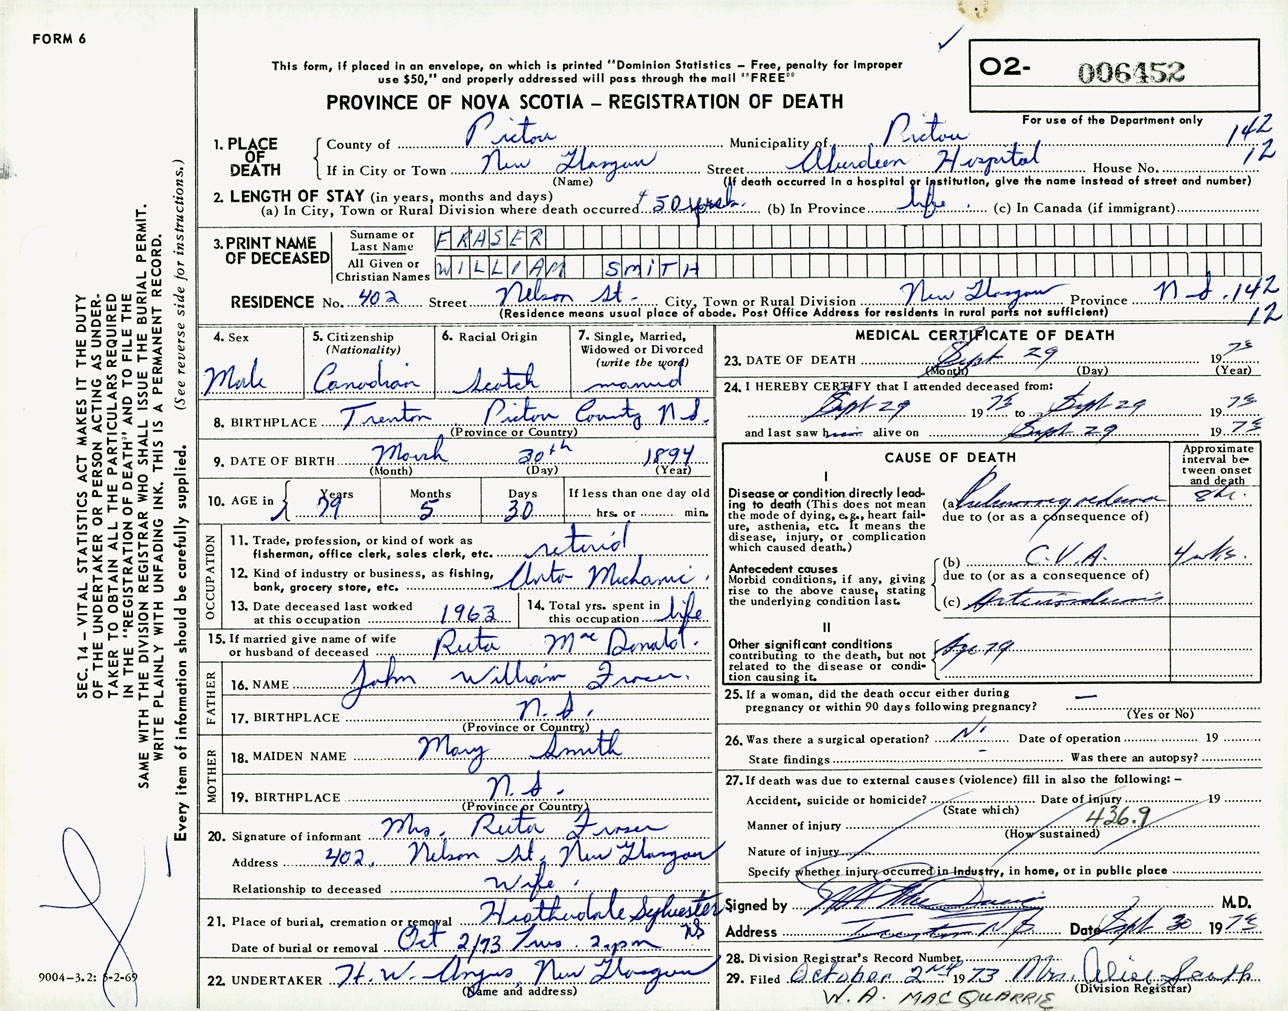 FORM 6
This form, if placed in an envelope, on which is printed "Dominion Statistics – Free, penalty for improper
use $50," and properly addressed will pass through the mail "FREE"
PROVINCE OF NOVA SCOTIA – REGISTRATION OF DEATH
O2- 006452
For use of the Department only
1. PLACE OF DEATH
County of Pictou Municipality of Pictou 142
If in City or Town New Glasgow Street Aberdeen Hospital House No. 12
(Name) (If death occurred in a hospital or institution, give the name instead of street and number)
2. LENGTH OF STAY (in years, months and days)
(a) In City, Town or Rural Division where death occurred 50 yrs. (b) In Province life. (c) In Canada (if immigrant)
3. PRINT NAME OF DECEASED
Surname or Last Name FRASER
All Given or Christian Names WILLIAM SMITH
RESIDENCE No. 402 Street Nelson St. City, Town or Rural Division New Glasgow Province N.S. 142
(Residence means usual place of abode. Post Office Address for residents in rural parts not sufficient) 12
4. Sex
Male
5. Citizenship
(Nationality)
Canadian
6. Racial Origin
Scotch
7. Single, Married,
Widowed or Divorced
(write the word)
married
8. BIRTHPLACE Trenton Pictou County N.S.
(Province or Country)
9. DATE OF BIRTH March 30th 1894
(Month) (Day) (Year)
10. AGE in
Years 79
Months 5
Days 30
If less than one day old
hrs. or min.
OCCUPATION
11. Trade, profession, or kind of work as
fisherman, office clerk, sales clerk, etc. retired
12. Kind of industry or business, as fishing,
bank, grocery store, etc. Auto Mechanic.
13. Date deceased last worked
at this occupation 1963
14. Total yrs. spent in
this occupation life
15. If married give name of wife
or husband of deceased Reta MacDonald.
FATHER
16. NAME John William Fraser.
17. BIRTHPLACE N.S.
(Province or Country)
MOTHER
18. MAIDEN NAME Mary Smith
19. BIRTHPLACE N.S.
(Province or Country)
20. Signature of informant Mrs. Reta Fraser
Address 402, Nelson St, New Glasgow
Relationship to deceased Wife.
21. Place of burial, cremation or removal Heatherdale Sylvester
NS
Date of burial or removal Oct 2/73 Tues. 2 pm
22. UNDERTAKER H.W. Angus, New Glasgow
(Name and address)
MEDICAL CERTIFICATE OF DEATH
23. DATE OF DEATH Sept 29 1973
(Month) (Day) (Year)
24. I HEREBY CERTIFY that I attended deceased from:
Sept 29 1973 to Sept 29 1973
and last saw him alive on Sept 29 1973
CAUSE OF DEATH
Approximate
interval be-
tween onset
and death
I
Disease or condition directly lead-
ing to death (This does not mean
the mode of dying, e.g., heart fail-
ure, asthenia, etc. It means the
disease, injury, or complication
which caused death.)
(a) Pulmonary oedema 8 hr.
due to (or as a consequence of)
Antecedent causes
Morbid conditions, if any, giving
rise to the above cause, stating
the underlying condition last.
(b) C.V.A. 4 wks.
due to (or as a consequence of)
(c) Arteriosclerosis
II
Other significant conditions
contributing to the death, but not
related to the disease or condi-
tion causing it.
Age 79
25. If a woman, did the death occur either during
pregnancy or within 90 days following pregnancy? –
(Yes or No)
26. Was there a surgical operation? No Date of operation 19
State findings – Was there an autopsy?
27. If death was due to external causes (violence) fill in also the following: –
Accident, suicide or homicide? Date of injury 19
(State which)
Manner of injury 436.9
(How sustained)
Nature of injury
Specify whether injury occurred in industry, in home, or in public place
Signed by M.D.
Address Trenton N.S. Date Sept 30 1973
28. Division Registrar's Record Number
29. Filed October 2nd 1973 Mrs. Alice
(Division Registrar)
W. A. MACQUARRIE
SEC. 14 – VITAL STATISTICS ACT MAKES IT THE DUTY
OF THE UNDERTAKER OR PERSON ACTING AS UNDER-
TAKER TO OBTAIN ALL THE PARTICULARS REQUIRED
IN THE "REGISTRATION OF DEATH" AND TO FILE THE
SAME WITH THE DIVISION REGISTRAR WHO SHALL ISSUE THE BURIAL PERMIT.
WRITE PLAINLY WITH UNFADING INK. THIS IS A PERMANENT RECORD.
Every item of information should be carefully supplied. (See reverse side for instructions.)
9004-3.2: 6-2-69